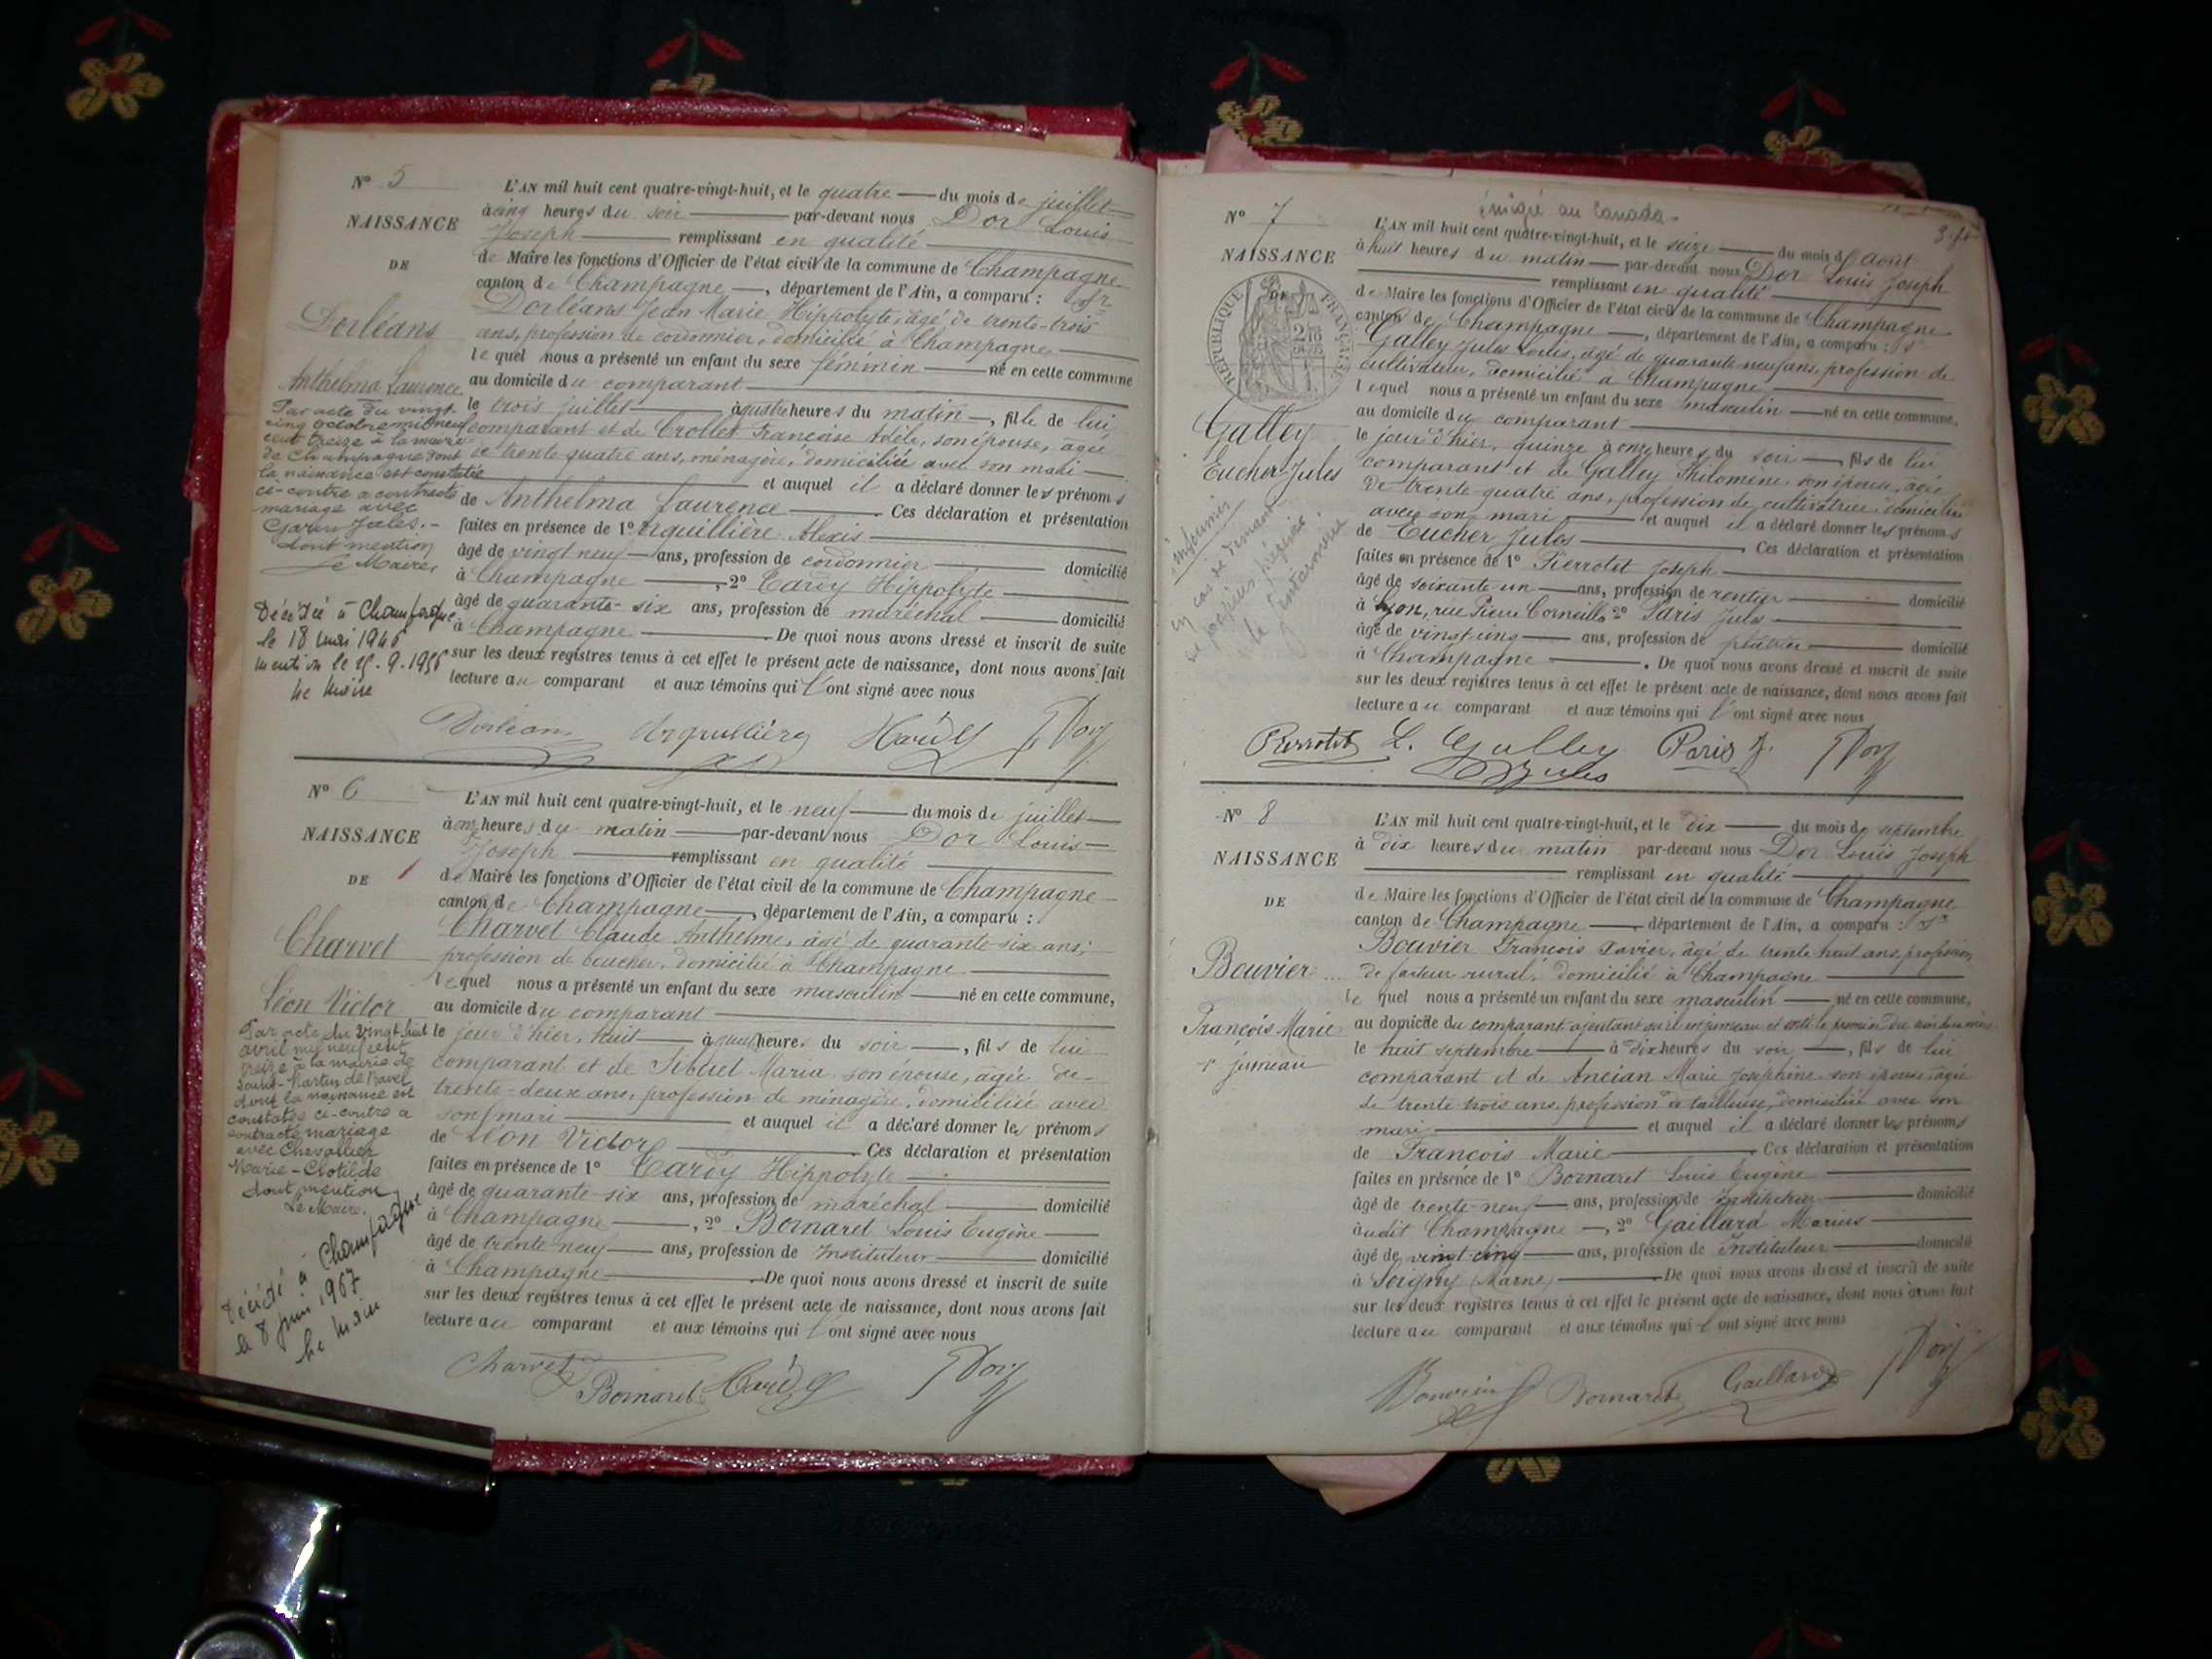 N° 5
NAISSANCE
DE
Dorléans
Anthelma Laurence
Par acte du vingt-
cinq octobre mil neuf
cent treize à la mairie
de Champagne dont
la naissance est constatée
ci-contre a contracté
mariage avec
Garin Jules.-
dont mention
Le Maire,
Décédée à Champagne
le 18 mai 1946
mention le 25.9.1956
Le Maire
L'AN mil huit cent quatre-vingt-huit, et le quatre du mois de juillet
à cinq heures du soir par-devant nous Dor Louis
Joseph remplissant en qualité
de Maire les fonctions d'Officier de l'état civil de la commune de Champagne
canton de Champagne, département de l'Ain, a comparu : Sr
Dorléans Jean Marie Hippolyte, âgé de trente-trois
ans, profession de cordonnier, domicilié à Champagne
lequel nous a présenté un enfant du sexe féminin né en cette commune
au domicile du comparant
le trois juillet à quatre heures du matin, fille de lui
comparant et de Crollet Françoise Adèle, son épouse, âgée
de trente quatre ans, ménagère, domiciliée avec son mari
et auquel il a déclaré donner les prénoms
de Anthelma Laurence Ces déclaration et présentation
faites en présence de 1° Arquillière Alexis
âgé de vingt neuf ans, profession de cordonnier domicilié
à Champagne, 2° Tardy Hippolyte
âgé de quarante-six ans, profession de maréchal domicilié
à Champagne De quoi nous avons dressé et inscrit de suite
sur les deux registres tenus à cet effet le présent acte de naissance, dont nous avons fait
lecture au comparant et aux témoins qui l'ont signé avec nous
Dorléans Arquillière Tardy Dor
N° 6
NAISSANCE
DE
Charvet
Léon Victor
Par acte du vingt-huit
avril mil neuf cent
treize à la mairie de
Saint-Martin de Bavel
dont la naissance est
constatée ci-contre a
contracté mariage
avec Chevallier
Marie-Clotilde
dont mention
Le Maire.
Décédé à Champagne
le 8 juin 1967
Le Maire
L'AN mil huit cent quatre-vingt-huit, et le neuf du mois de juillet
à onze heures du matin par-devant nous Dor Louis
Joseph remplissant en qualité
de Maire les fonctions d'Officier de l'état civil de la commune de Champagne
canton de Champagne, département de l'Ain, a comparu :
Charvet Claude Anthelme, âgé de quarante-six ans,
profession de boucher, domicilié à Champagne
lequel nous a présenté un enfant du sexe masculin né en cette commune,
au domicile du comparant
le jour d'hier, huit à heures du soir, fils de lui
comparant et de Sibuet Maria son épouse, âgée de
trente-deux ans, profession de ménagère, domiciliée avec
son mari et auquel il a déclaré donner les prénoms
de Léon Victor Ces déclaration et présentation
faites en présence de 1° Tardy Hippolyte
âgé de quarante-six ans, profession de maréchal domicilié
à Champagne, 2° Bornaret Louis Eugène
âgé de trente neuf ans, profession de Instituteur domicilié
à Champagne De quoi nous avons dressé et inscrit de suite
sur les deux registres tenus à cet effet le présent acte de naissance, dont nous avons fait
lecture au comparant et aux témoins qui l'ont signé avec nous
Charvet Bornaret Tardy Dor
émigré au Canada
N° 7
NAISSANCE
DE
RÉPUBLIQUE FRANÇAISE
Galley
Eucher Jules
en cas de demande
L'AN mil huit cent quatre-vingt-huit, et le seize du mois d'août
à huit heures du matin par-devant nous Dor Louis Joseph
remplissant en qualité
de Maire les fonctions d'Officier de l'état civil de la commune de Champagne
canton de Champagne, département de l'Ain, a comparu : Sr
Galley Jules Louis, âgé de quarante neuf ans, profession de
cultivateur, domicilié à Champagne
lequel nous a présenté un enfant du sexe masculin né en cette commune,
au domicile du comparant
le jour d'hier, quinze à onze heures du soir, fils de lui
comparant et de Galley Philomène, son épouse, âgée
de trente-quatre ans, profession de cultivatrice, domiciliée
avec son mari et auquel il a déclaré donner les prénoms
de Eucher Jules Ces déclaration et présentation
faites en présence de 1° Pierrotet Joseph
âgé de soixante-un ans, profession de rentier domicilié
à Lyon, rue Pierre Corneille 2° Paris Jules
âgé de vingt cinq ans, profession de plâtrier domicilié
à Champagne. De quoi nous avons dressé et inscrit de suite
sur les deux registres tenus à cet effet le présent acte de naissance, dont nous avons fait
lecture au comparant et aux témoins qui l'ont signé avec nous
Pierrotet L. Galley Jules Paris J. Dor
N° 8
NAISSANCE
DE
Bouvier
François Marie
1er jumeau
L'AN mil huit cent quatre-vingt-huit, et le dix du mois de septembre
à dix heures du matin par-devant nous Dor Louis Joseph
remplissant en qualité
de Maire les fonctions d'Officier de l'état civil de la commune de Champagne
canton de Champagne, département de l'Ain, a comparu : Sr
Bouvier François Xavier, âgé de trente huit ans, profession
de facteur rural, domicilié à Champagne
lequel nous a présenté un enfant du sexe masculin né en cette commune,
au domicile du comparant, ajoutant qu'il est jumeau et sorti le premier du sein de sa mère
le huit septembre à dix heures du soir, fils de lui
comparant et de Ancian Marie Josephine son épouse, âgée
de trente trois ans, profession de tailleuse, domiciliée avec son
mari et auquel il a déclaré donner les prénoms
de François Marie Ces déclaration et présentation
faites en présence de 1° Bornaret Louis Eugène
âgé de trente-neuf ans, profession de Instituteur domicilié
audit Champagne, 2° Gaillard Marius
âgé de vingt cinq ans, profession de Instituteur domicilié
à Soigny (Marne) De quoi nous avons dressé et inscrit de suite
sur les deux registres tenus à cet effet le présent acte de naissance, dont nous avons fait
lecture au comparant et aux témoins qui l'ont signé avec nous
Bouvier Bornaret Gaillard Dor